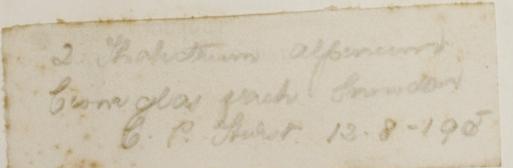 2. Thalictrum alpinum
Cwm glas Snowdon
C. P. Hurst. 12-8-190